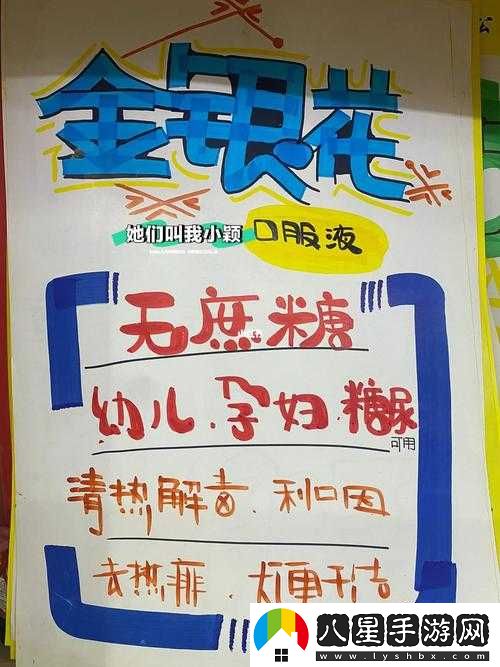 金银花
她们叫我小颖
口服液
无蔗糖
幼儿.孕妇.糖尿
可用
清热解毒.利口因
去热痱.大便干洁
八星手游网
www.lyshbx.com